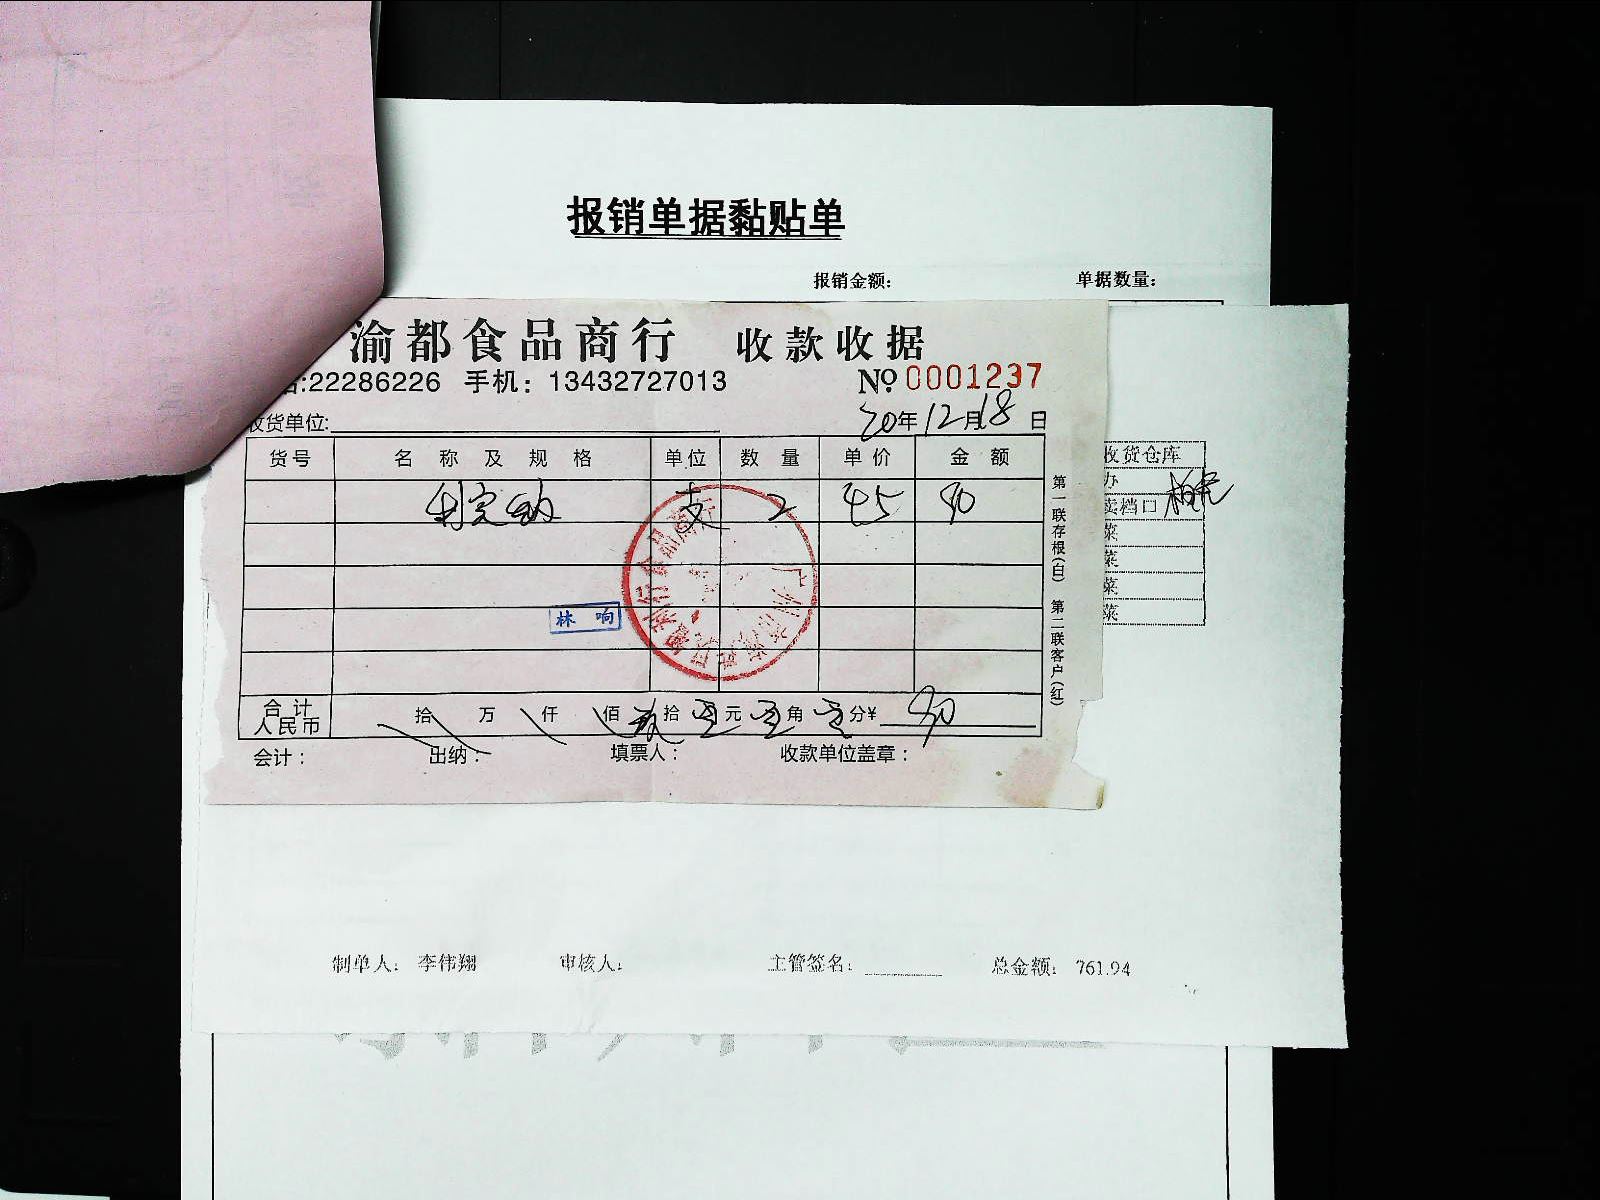 报销单据黏贴单
报销金额： 单据数量：
渝都食品商行 收款收据
:22286226 手机：13432727013 № 0001237
收货单位: 20年12月18日
货号 名称及规格 单位 数量 单价 金额
支 2 45 90
林响
合计人民币 拾 万 仟 佰 拾 元 角 分¥ 90
会计： 出纳： 填票人： 收款单位盖章：
第一联存根(白) 第二联客户(红)
收货仓库
办
卖档口
菜
菜
菜
菜
制单人： 李伟翔 审核人： 主管签名： 总金额： 761.94